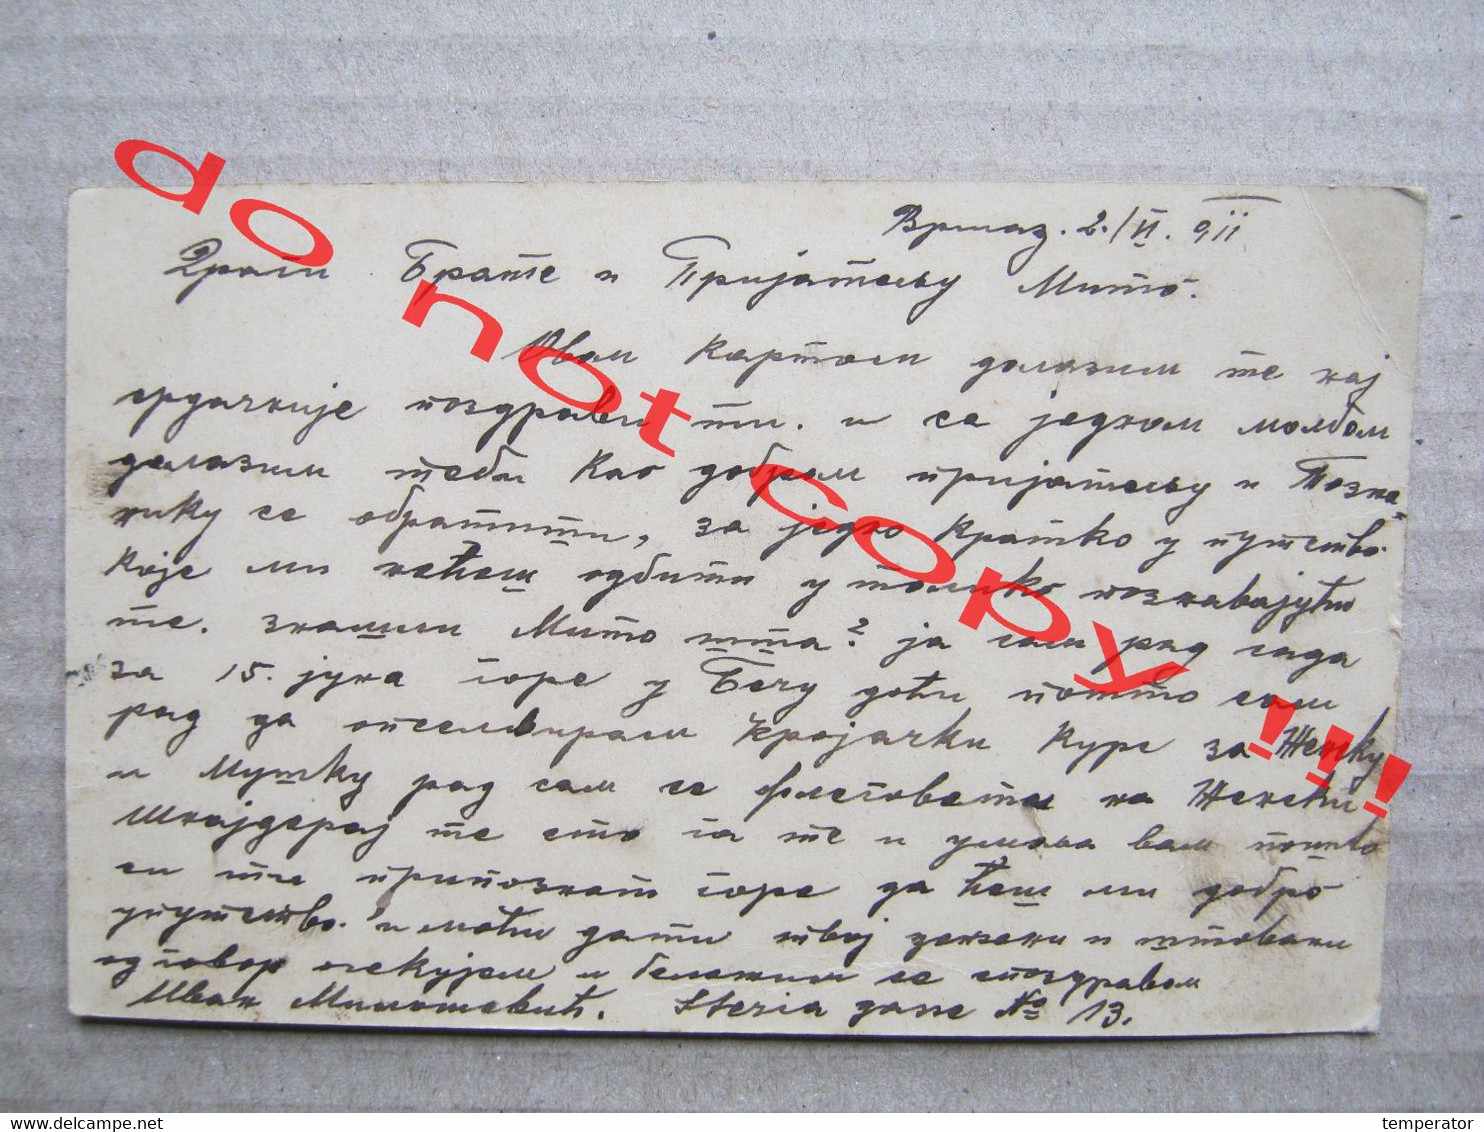 Вршац. 2./II. 911
Драги Брате и Пријатељу Мито.
Овом картом долазим те нај
срдачније поздравити. и са једном молбом
долазим теби као добром пријатељу и Позна-
нику се обратити, за једно кратко упутство.
које ми нећеш одбити у толико познавајући
те. знашли Мито шта? ја сам рад сада
за 15. јуна горе у Бечу доћи пошто сам
рад да Кројачки Курс за Женску
и Мушку рад сам се на Женски
Шнајдерај те сто га те и вам пошто
си ти горе да ћеш ми добро
упутство. и моћи дати твој и штовани
одговор очекујем и бележим се споздравом
Иван Милошевић. Steria gasse No 13.
do not copy !!!
delcampe.net
temperator